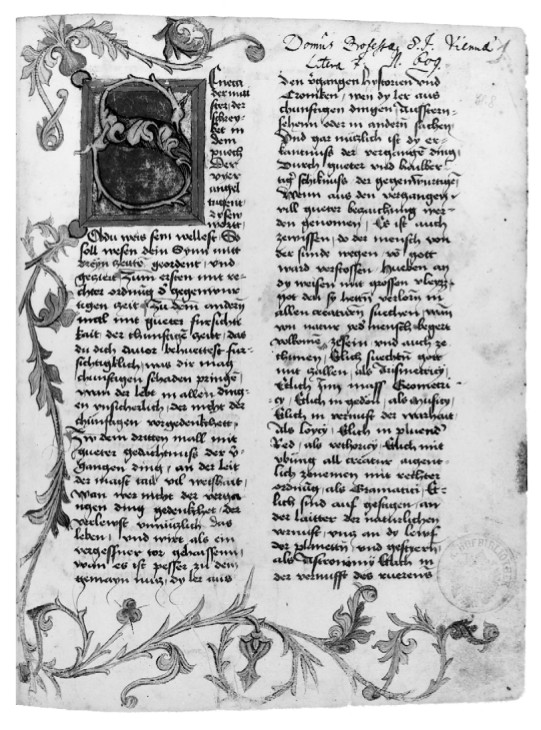 Domus Professa S. J. Vienna
Litera F. N. 609
S
Eneca
der mait
ster der
schrey-
bet in
dem
puech
Der
vier
angel
tugent
dyse
wort
Obdu weis sein wellest So
soll wesen dein Synn mitt
dreyn zeite geordent, vnd
geziert Zum ersten mit re-
chter ordnug d gegenwur
tigen zeit, Zu dem andern
mal mit gueter fursichti
kait der chunftige zeit, das
du dich dauor behuettest fur-
sichtigklich, was dir mag
chunftigen schaden pringe
wan der lebt in allen ding-
en vnsicherlich, der nicht der
chunftigen vorgedenkhett,
Zw dem dritten mall mit
gueter gedachtnuss der v-
gangen ding, an der leit
der maist tail vil weishait,
wan wer nicht der verga
ngen ding gedenkhet, der
verleust vnnuczlich das
leben, vnd wirt als ein
vergessner tor gehaissenn,
wan es ist pesser zu dem
gemayn nucz, dy ler aus
den vgangen hystorien vnd
Croniken, wen dy ler aus
chunftigen dingen
oder in andern suchen
Vnd gar nuczlich ist dy er-
kantnuss der vergange ding
Durch gueter vnd
schiknuss der gegenwurtige
Wenn aus den vergangen
vill gueter wer-
den genomen, Es ist auch
zewissen, do der mensch von
der sunde wegen vo gott
ward verstossen, Hueben an
dy weisen mit grossen vleys
got den sy hetten verlorn in
allen creaturen suechen, wan
von natur yed mensch begert
volkume zesein vnd auch ze-
chunen, Etlich suechten gott
mit zallen, als Arismetrici,
Etlich Inn mass Geometri-
cy, Etlich in gedon, als musicy
Etlich in vernuft der warhait
Als loyci, Etlich in pluend
Red, als rethoricy, Etlich mit
vbung all creatur aigent-
lich zenemen mit rechter
ordnug, als Gramatici, Et-
lich sind auf gestigen, an
der laitter der naturlichen
vernuft, vncz an dy leuf
der planeten, vnd gestyern,
als Astronomy Etlich in
der vernufft des